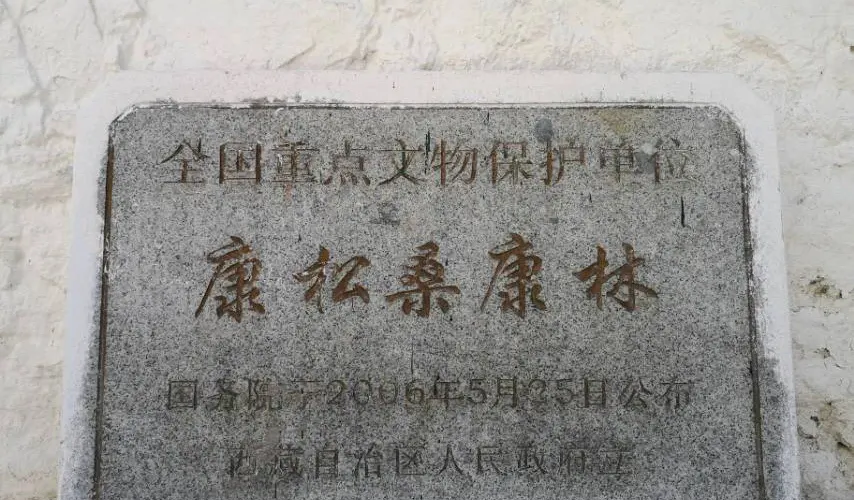 全国重点文物保护单位
康松桑康林
国务院于2006年5月25日公布
西藏自治区人民政府立